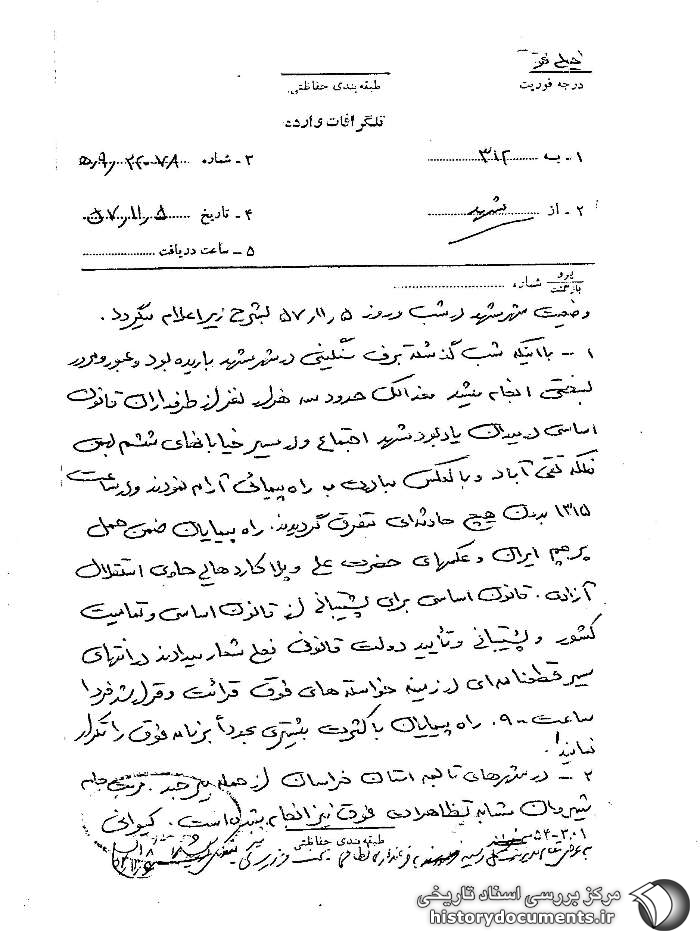 خیلی فوری
درجه فوریت
طبقه‌بندی حفاظتی
تلگرافات وارده
۱ - ب ۳۱۲
۳ - شماره ۵/۹/۲۲۰۷۸
۲ - از مشهد
۴ - تاریخ ۵/۱۱/۵۷
۵ - ساعت دریافت
پیرو
بازگشت
شماره
وضعیت شهر مشهد در شب و روز ۵/۱۱/۵۷ بشرح زیر اعلام میگردد.
۱ - با اینکه شب گذشته برف سنگینی در شهر مشهد باریده بود و عبور و مرور
بسختی انجام میشد معذالک حدود سه هزار نفر از طرفداران قانون
اساسی در میدان یادبود شهید اجتماع و در مسیر خیابانهای ششم بهمن
فلکه تقی آباد و بالعکس مبادرت به راه پیمائی آرام نمودند و در ساعت
۱۳۱۵ بدون هیچ حادثه‌ای متفرق گردیدند. راه پیمایان ضمن حمل
پرچم ایران و عکسهای حضرت علی و پلاکاردهایی حاوی استقلال
آزادی. قانون اساسی برای پشتیبانی از قانون اساسی و تمامیت
کشور و پشتیبانی و تأیید دولت قانونی فعلی شعار میدادند در انتهای
مسیر قطعنامه‌ای در زمینه خواسته های فوق قرائت و قرار شد فردا
ساعت ۹۰۰ راه پیمایان با کثرت بیشتری مجدداً برنامه فوق را تکرار
نمایند.
۲ - در شهرهای تابعه استان خراسان از جمله بیرجند. تربت جام
شیروان مشابه تظاهرات فوق نیز انجام شده است. کیوانی
طبقه‌بندی حفاظتی
۳۰۱-۵۴
مرکز بررسی اسناد تاریخی
historydocuments.ir